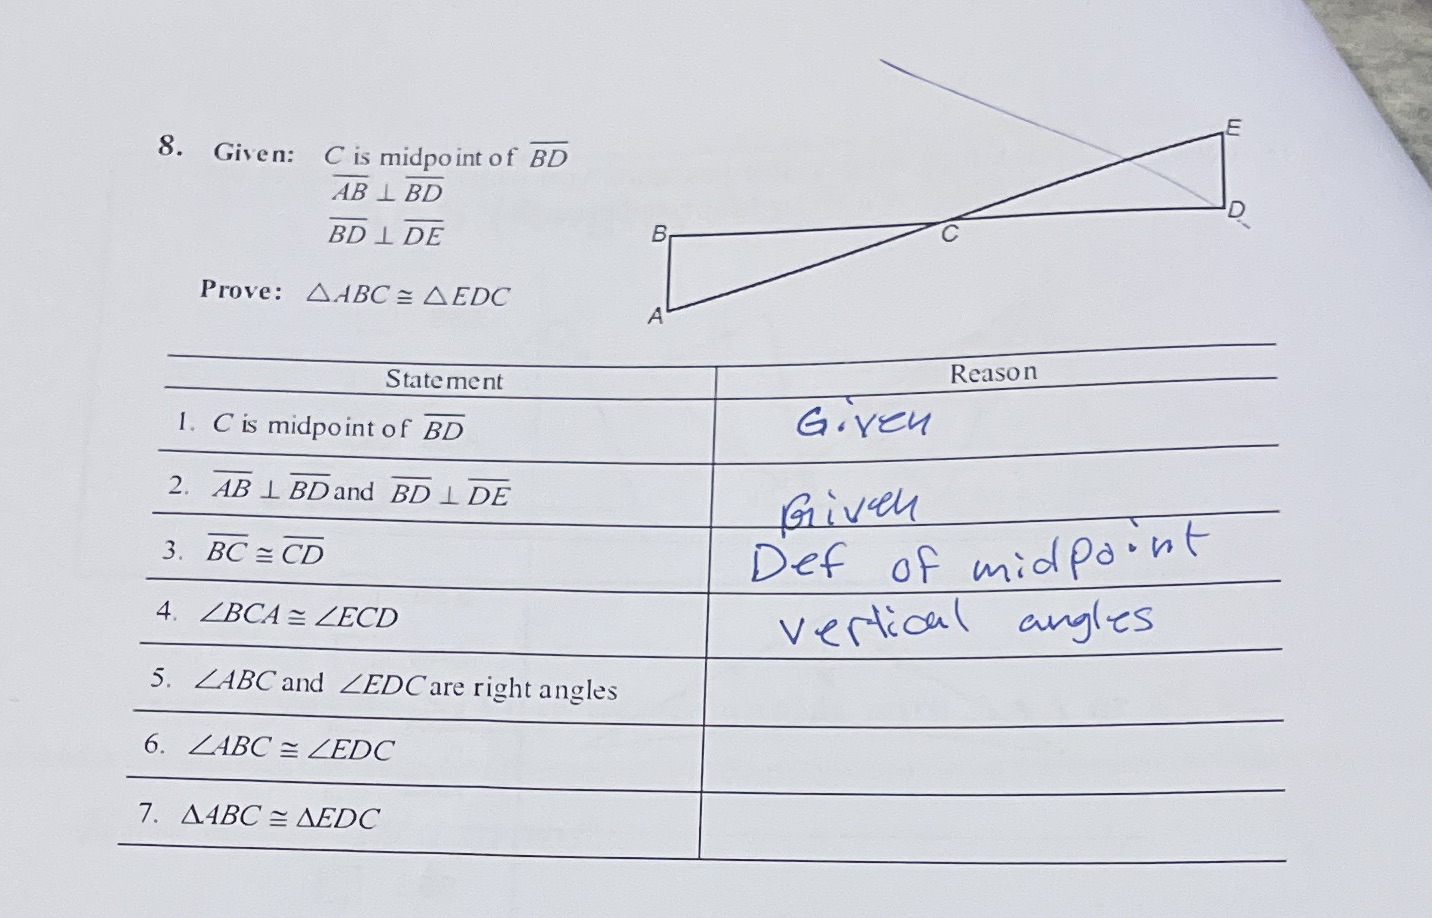 8. Given: C is midpoint of BD
AB ⊥ BD
BD ⊥ DE
Prove: △ABC ≅ △EDC
E
D
B
C
A
Statement Reason
1. C is midpoint of BD Given
2. AB ⊥ BD and BD ⊥ DE Given
3. BC ≅ CD Def of midpoint
4. ∠BCA ≅ ∠ECD vertical angles
5. ∠ABC and ∠EDC are right angles
6. ∠ABC ≅ ∠EDC
7. ΔABC ≅ ΔEDC